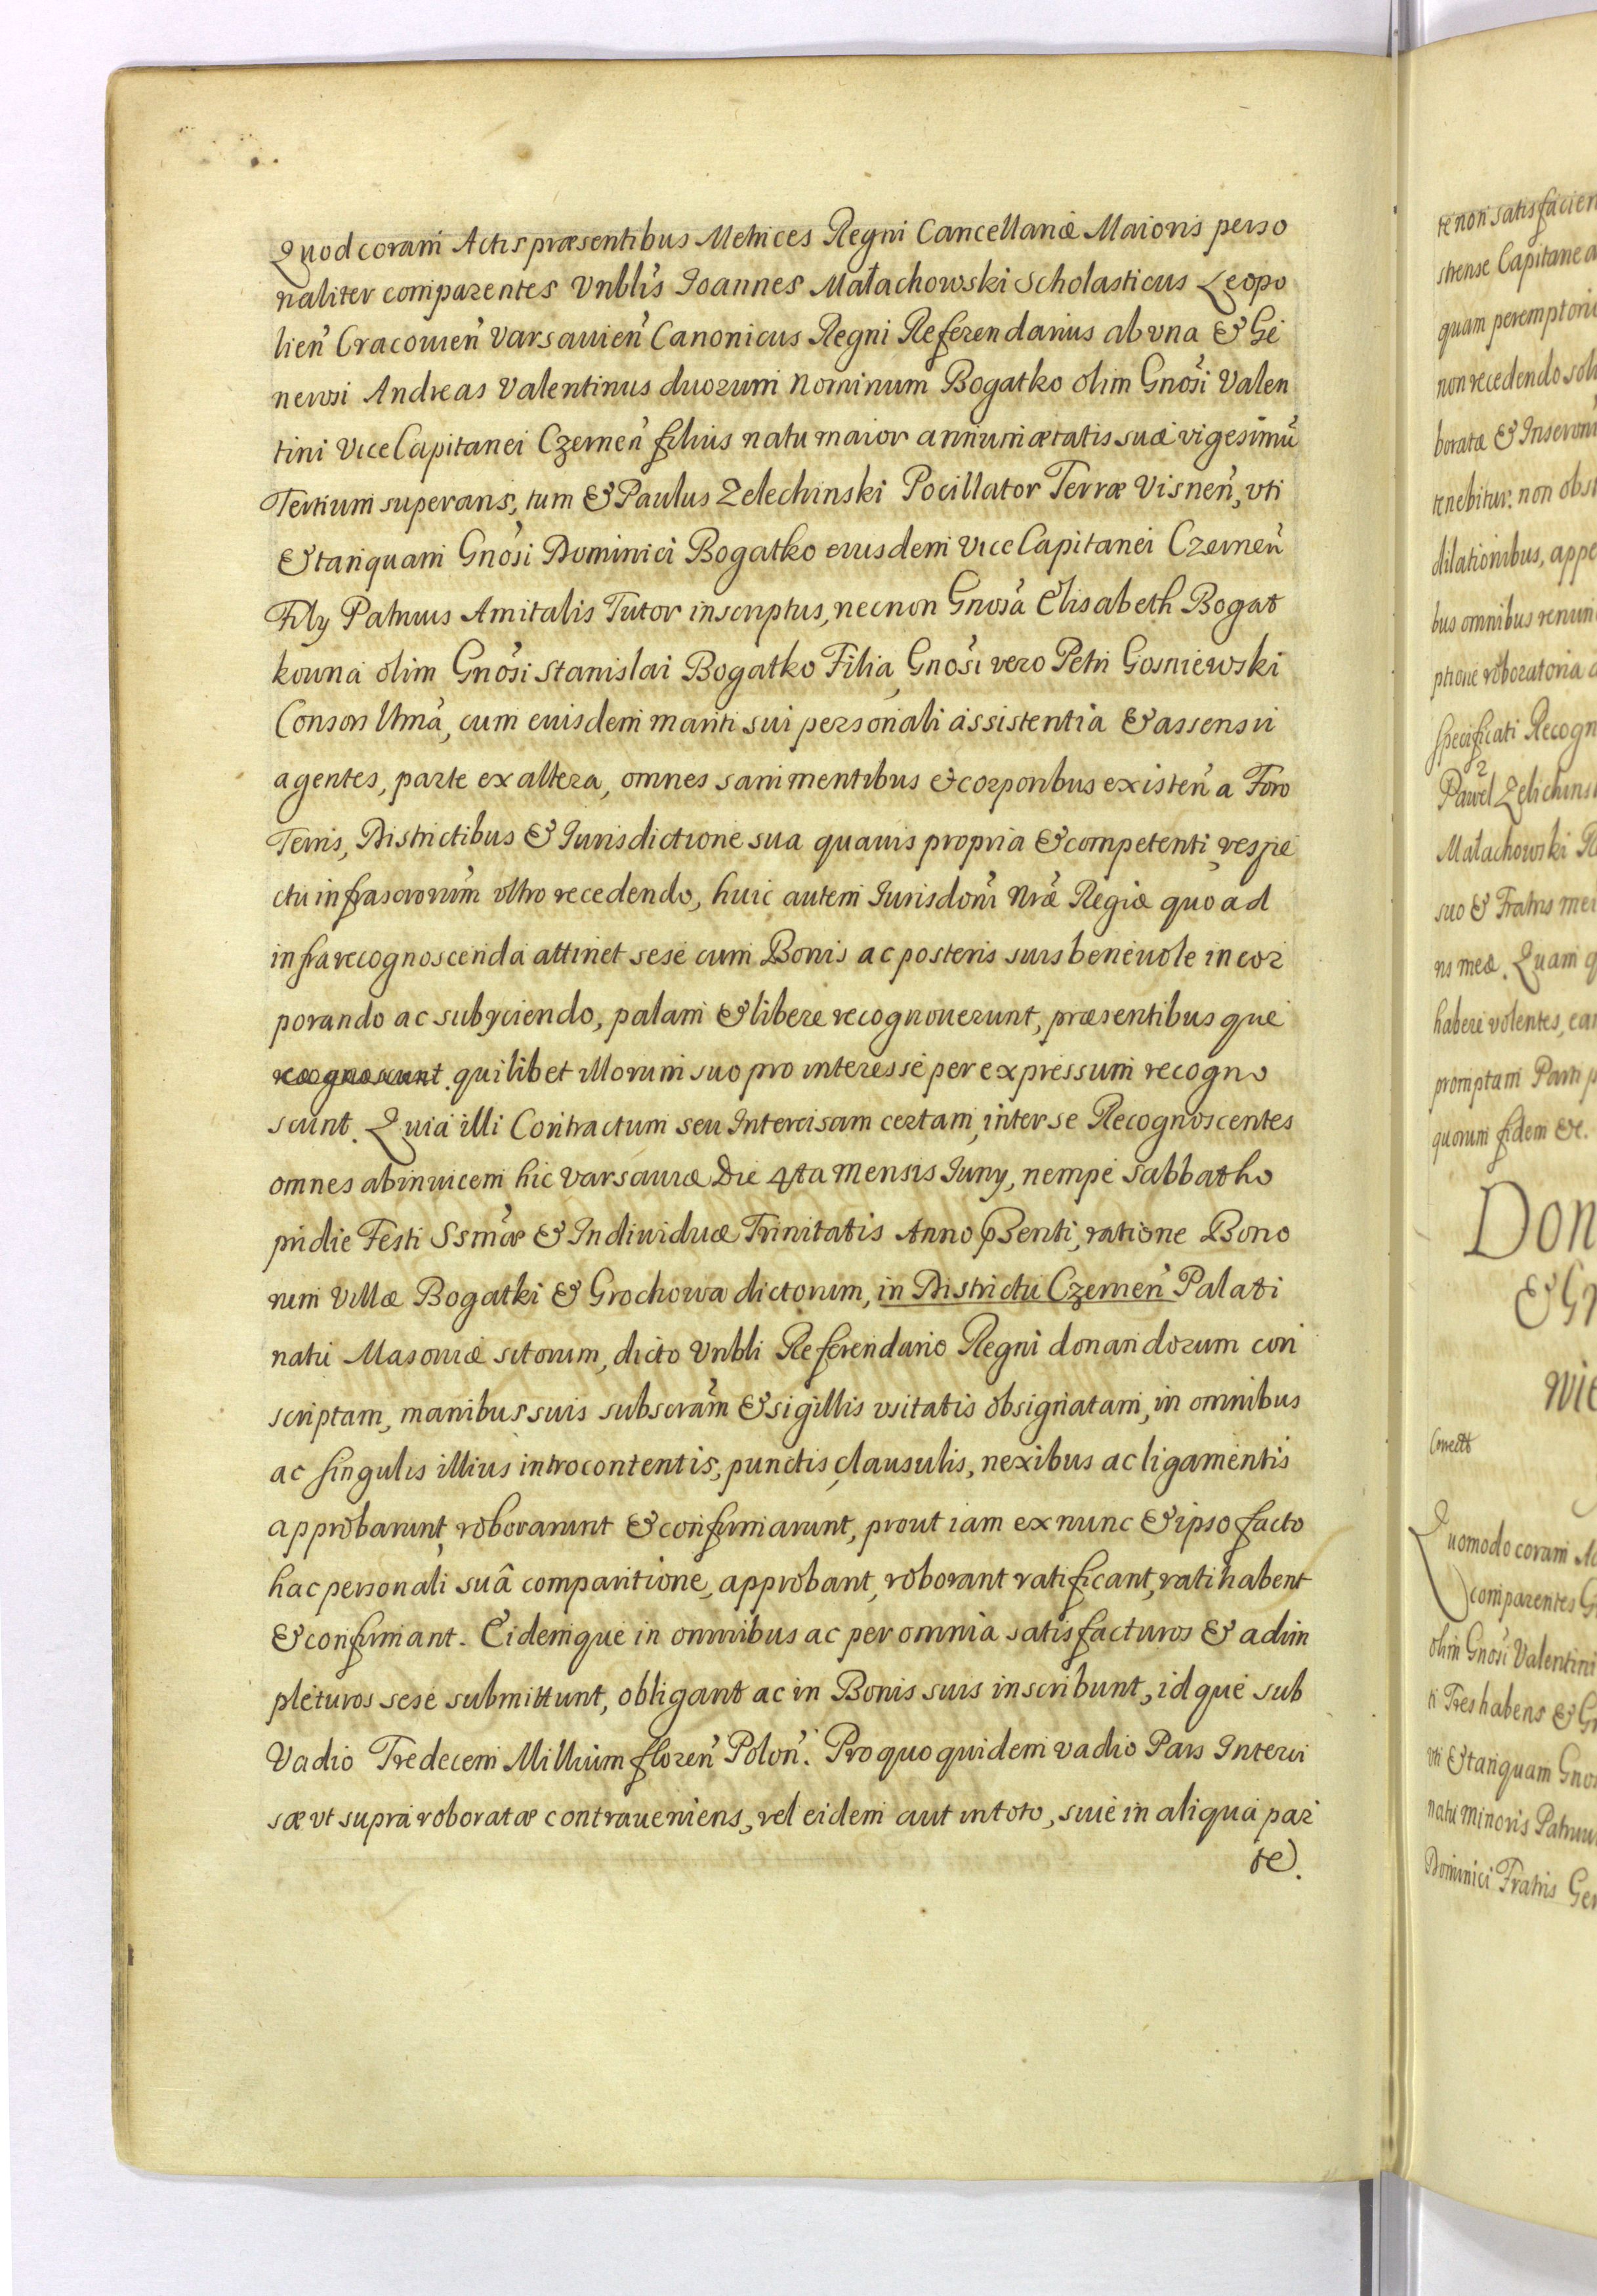 Quod coram Actis præsentibus Metrices Regni Cancellariæ Maioris perso
naliter comparentes Vnblis Ioannes Małachowski Scholasticus Leopo
lien Cracouien Varsauien Canonicus Regni Referendarius ab vna & Ge
nerosi Andreas Valentinus duorum nominum Bogatko olim Gnosi Valen
tini Vice Capitanei Czernen filius natu maior annum ætatis suæ vigesimū
Tertium superans, tum & Paulus Zelechinski Pocillator Terræ Visnen, vti
& tanquam Gnosi Dominici Bogatko eiusdem Vice Capitanei Czernen
Filij Patruus Amitalis Tutor inscriptus, necnon Gnosa Elisabeth Bogat
kowna olim Gnosi Stanislai Bogatko Filia, Gnosi vero Petri Gosniewski
Consors Ltma, cum eiusdem mariti sui personali assistentia & assensu
agentes, parte ex altera, omnes sani mentibus & corporibus existen a Foro
Terris, Districtibus & Iurisdictione sua quauis propria & competenti, respe
ctu infrascrorum vltro recedendo, huic autem Iurisdoni Nræ Regiæ quo ad
infra recognoscenda attinet sese cum Bonis ac posteris suis beneuole incor
porando ac subijciendo, palam & libere recognouerunt, præsentibus que
recognoscunt. quilibet illorum suo pro interesse per expressum recogno
scunt. Quia illi Contractum seu Intercisam certam, inter se Recognoscentes
omnes abinuicem hic Varsauiæ Die 4ta Mensis Iuny, nempe Sabbatho
pridie Festi Ssmæ & Indiuiduæ Trinitatis Anno pnti, ratione Bono
rum Villæ Bogatki & Grochowa dictorum, in Districtu Czernen Palati
natu Masouiæ sitorum, dicto Vnbli Referendario Regni donandorum con
scriptam, manibus suis subscram & sigillis vsitatis obsignatam, in omnibus
ac singulis illius introcontentis, punctis clausulis, nexibus ac ligamentis
approbarunt, roborarunt & confirmarunt, prout iam ex nunc & ipso facto
hac personali suâ comparitione, approbant, roborant ratificant, ratihabent
& confirmant. Eidemque in omnibus ac per omnia satisfacturos & adim
pleturos sese submittunt, obligant ac in Bonis suis inscribunt, idque sub
Vadio Tredecem Millium floren Polon. Pro quo quidem vadio Pars Interci
sæ vt supra roboratæ contraueniens, vel eidem aut in toto, siue in aliqua par
te.
te non satisfacien
strense Capitanea
quam peremptori
non recedendo sol
boratæ & Inseron
tenebitur. non obst
dilationibus, appe
bus omnibus renun
ptione roboratoria
specificati Recogn
Paweł Zelichins
Małachowski R
suo & Fratris mei
ris meæ. Quam q
habere volentes, ea
promptam Parti p
quorum fidem &c.
Don
& Gn
wie
Correct
Quomodo coram Ac
comparentes G
olim Gnosi Valentini
Tres habens & G
vti & tanquam Gno
natu minoris Patruu
Dominici Fratris Ger